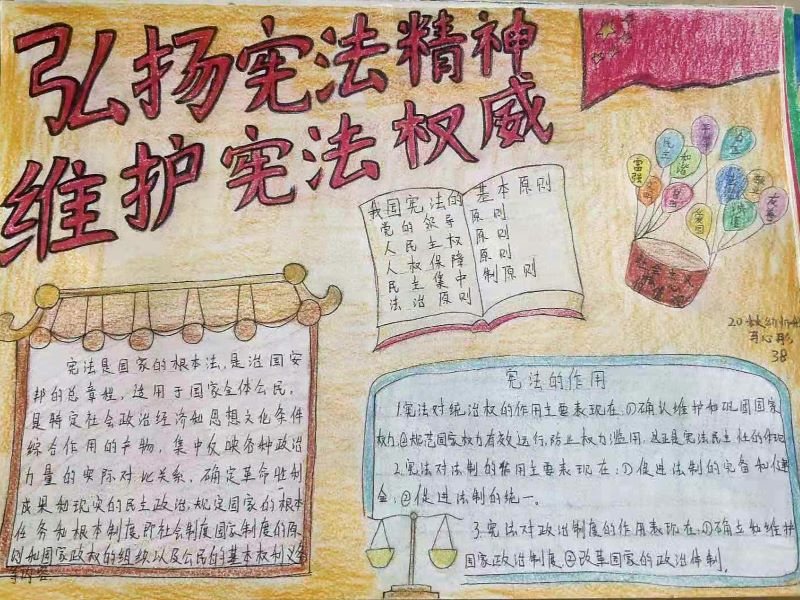 弘扬宪法精神
维护宪法权威
我国宪法的基本原则
党的领导原则
人民主权原则
人权保障原则
民主集中制原则
法治原则
富强
民主
文明
和谐
自由
平等
公正
法治
爱国
敬业
诚信
友善
宪法是国家的根本法,是治国安
邦的总章程,适用于国家全体公民,
是特定社会政治经济和思想文化条件
综合作用的产物,集中反映各种政治
力量的实际对比关系,确定革命胜利
成果和现实的民主政治,规定国家的根本
任务和根本制度,即社会制度国家制度的原
则和国家政权的组织以及公民的基本权利义务
等内容
宪法的作用
1.宪法对统治权的作用主要表现在:①确认维护和巩固国家
权力,②规范国家权力有效运行,防止权力滥用,这正是宪法民主性的体现
2.宪法对法制的作用主要表现在:①促进法制的完备和健
全;②促进法制的统一。
3.宪法对政治制度的作用表现在:①确立和维护
国家政治制度,②改革国家的政治体制.
38